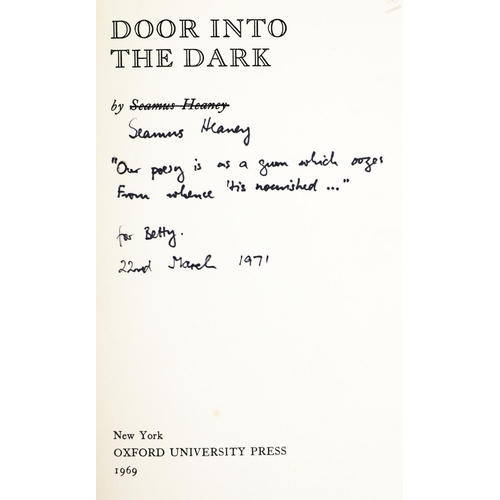 DOOR INTO
THE DARK
by Seamus Heaney
Seamus Heaney
"Our poesy is as a gum which oozes
From whence 'tis nourished ..."
for Betty.
22nd March 1971
New York
OXFORD UNIVERSITY PRESS
1969